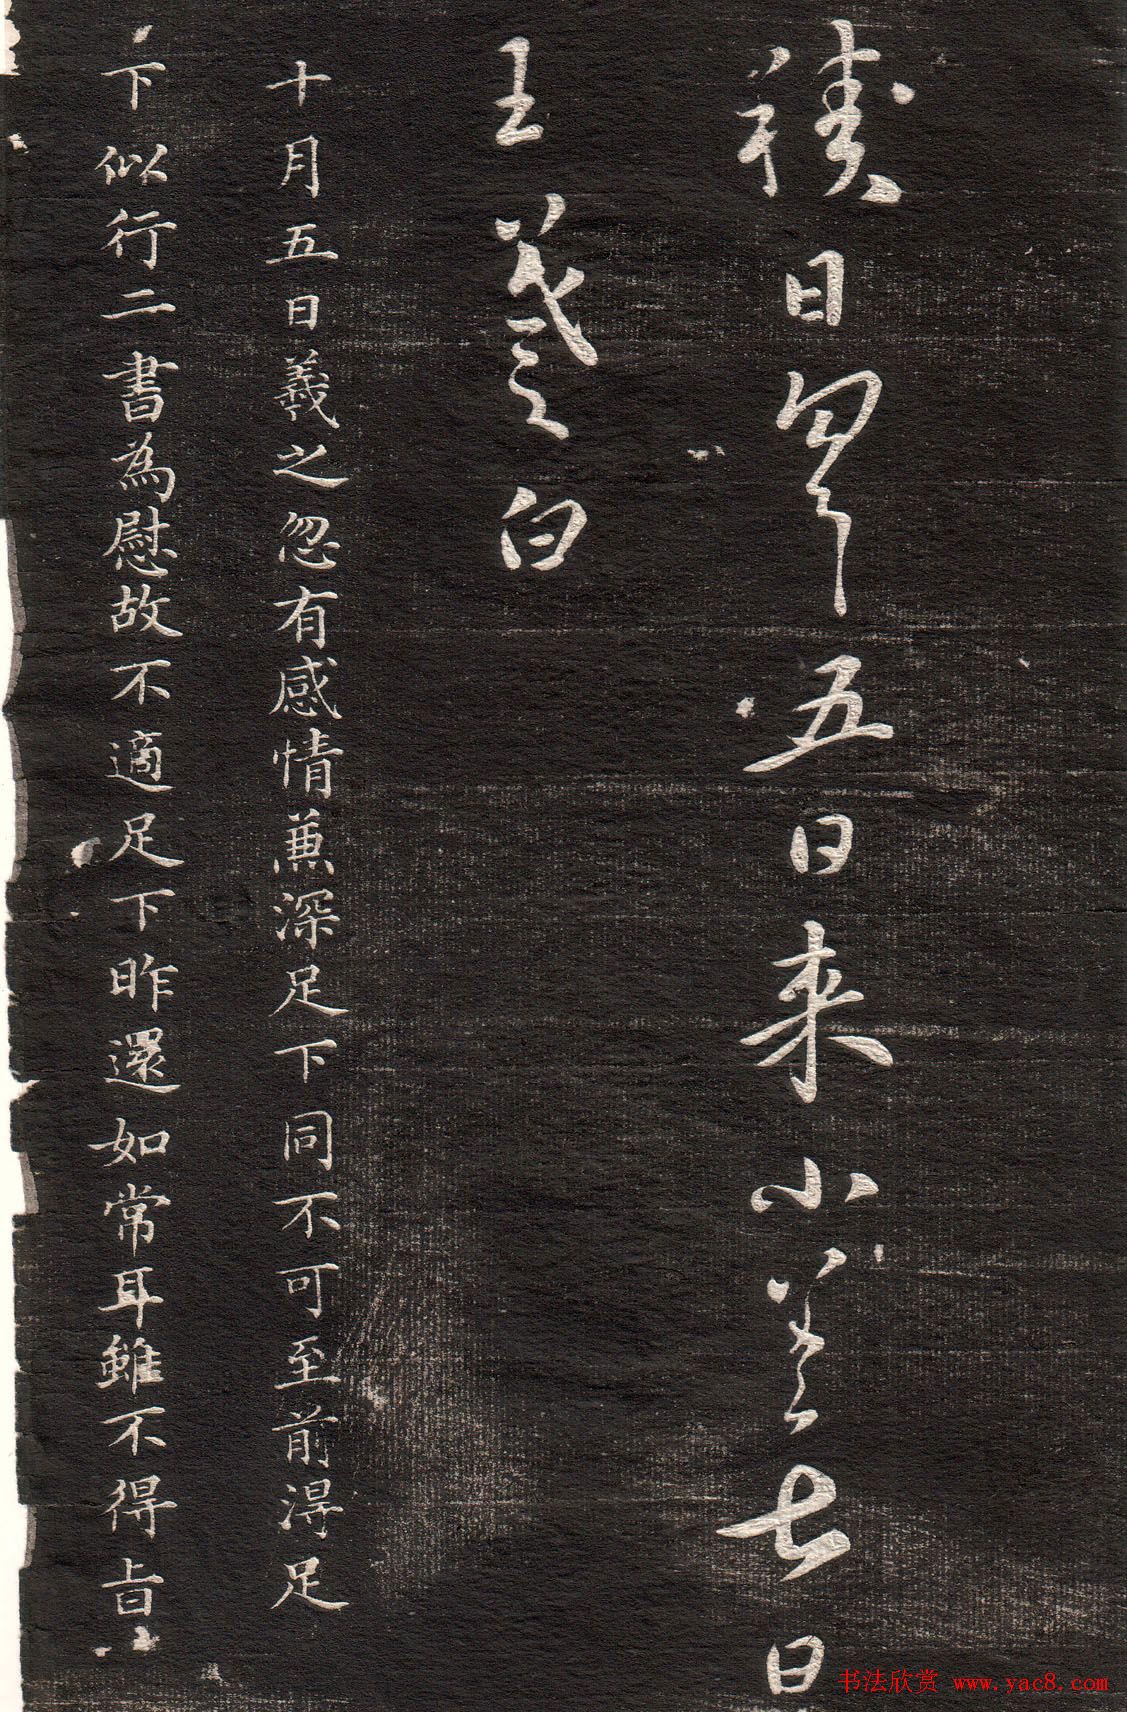 日五日來小差日
王羲之白
十月五日羲之忽有感情兼深足下同不可至前得足
下似行二書為慰故不適足下昨還如常耳雖不得旨
书法欣赏 www.yac8.com